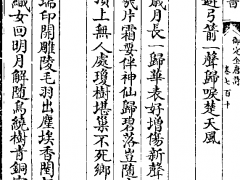 御定全唐詩
卷七百十
避弓箭一聲歸唳楚天風
歲月長一歸華表好增傷新聲
幾片霜要伴神仙歸碧落豈隨
頂上無人處瓊樹堪巢不死鄉
端印開雕陵毛羽出塵埃香閨
織女回明月解隨烏繞樹青銅